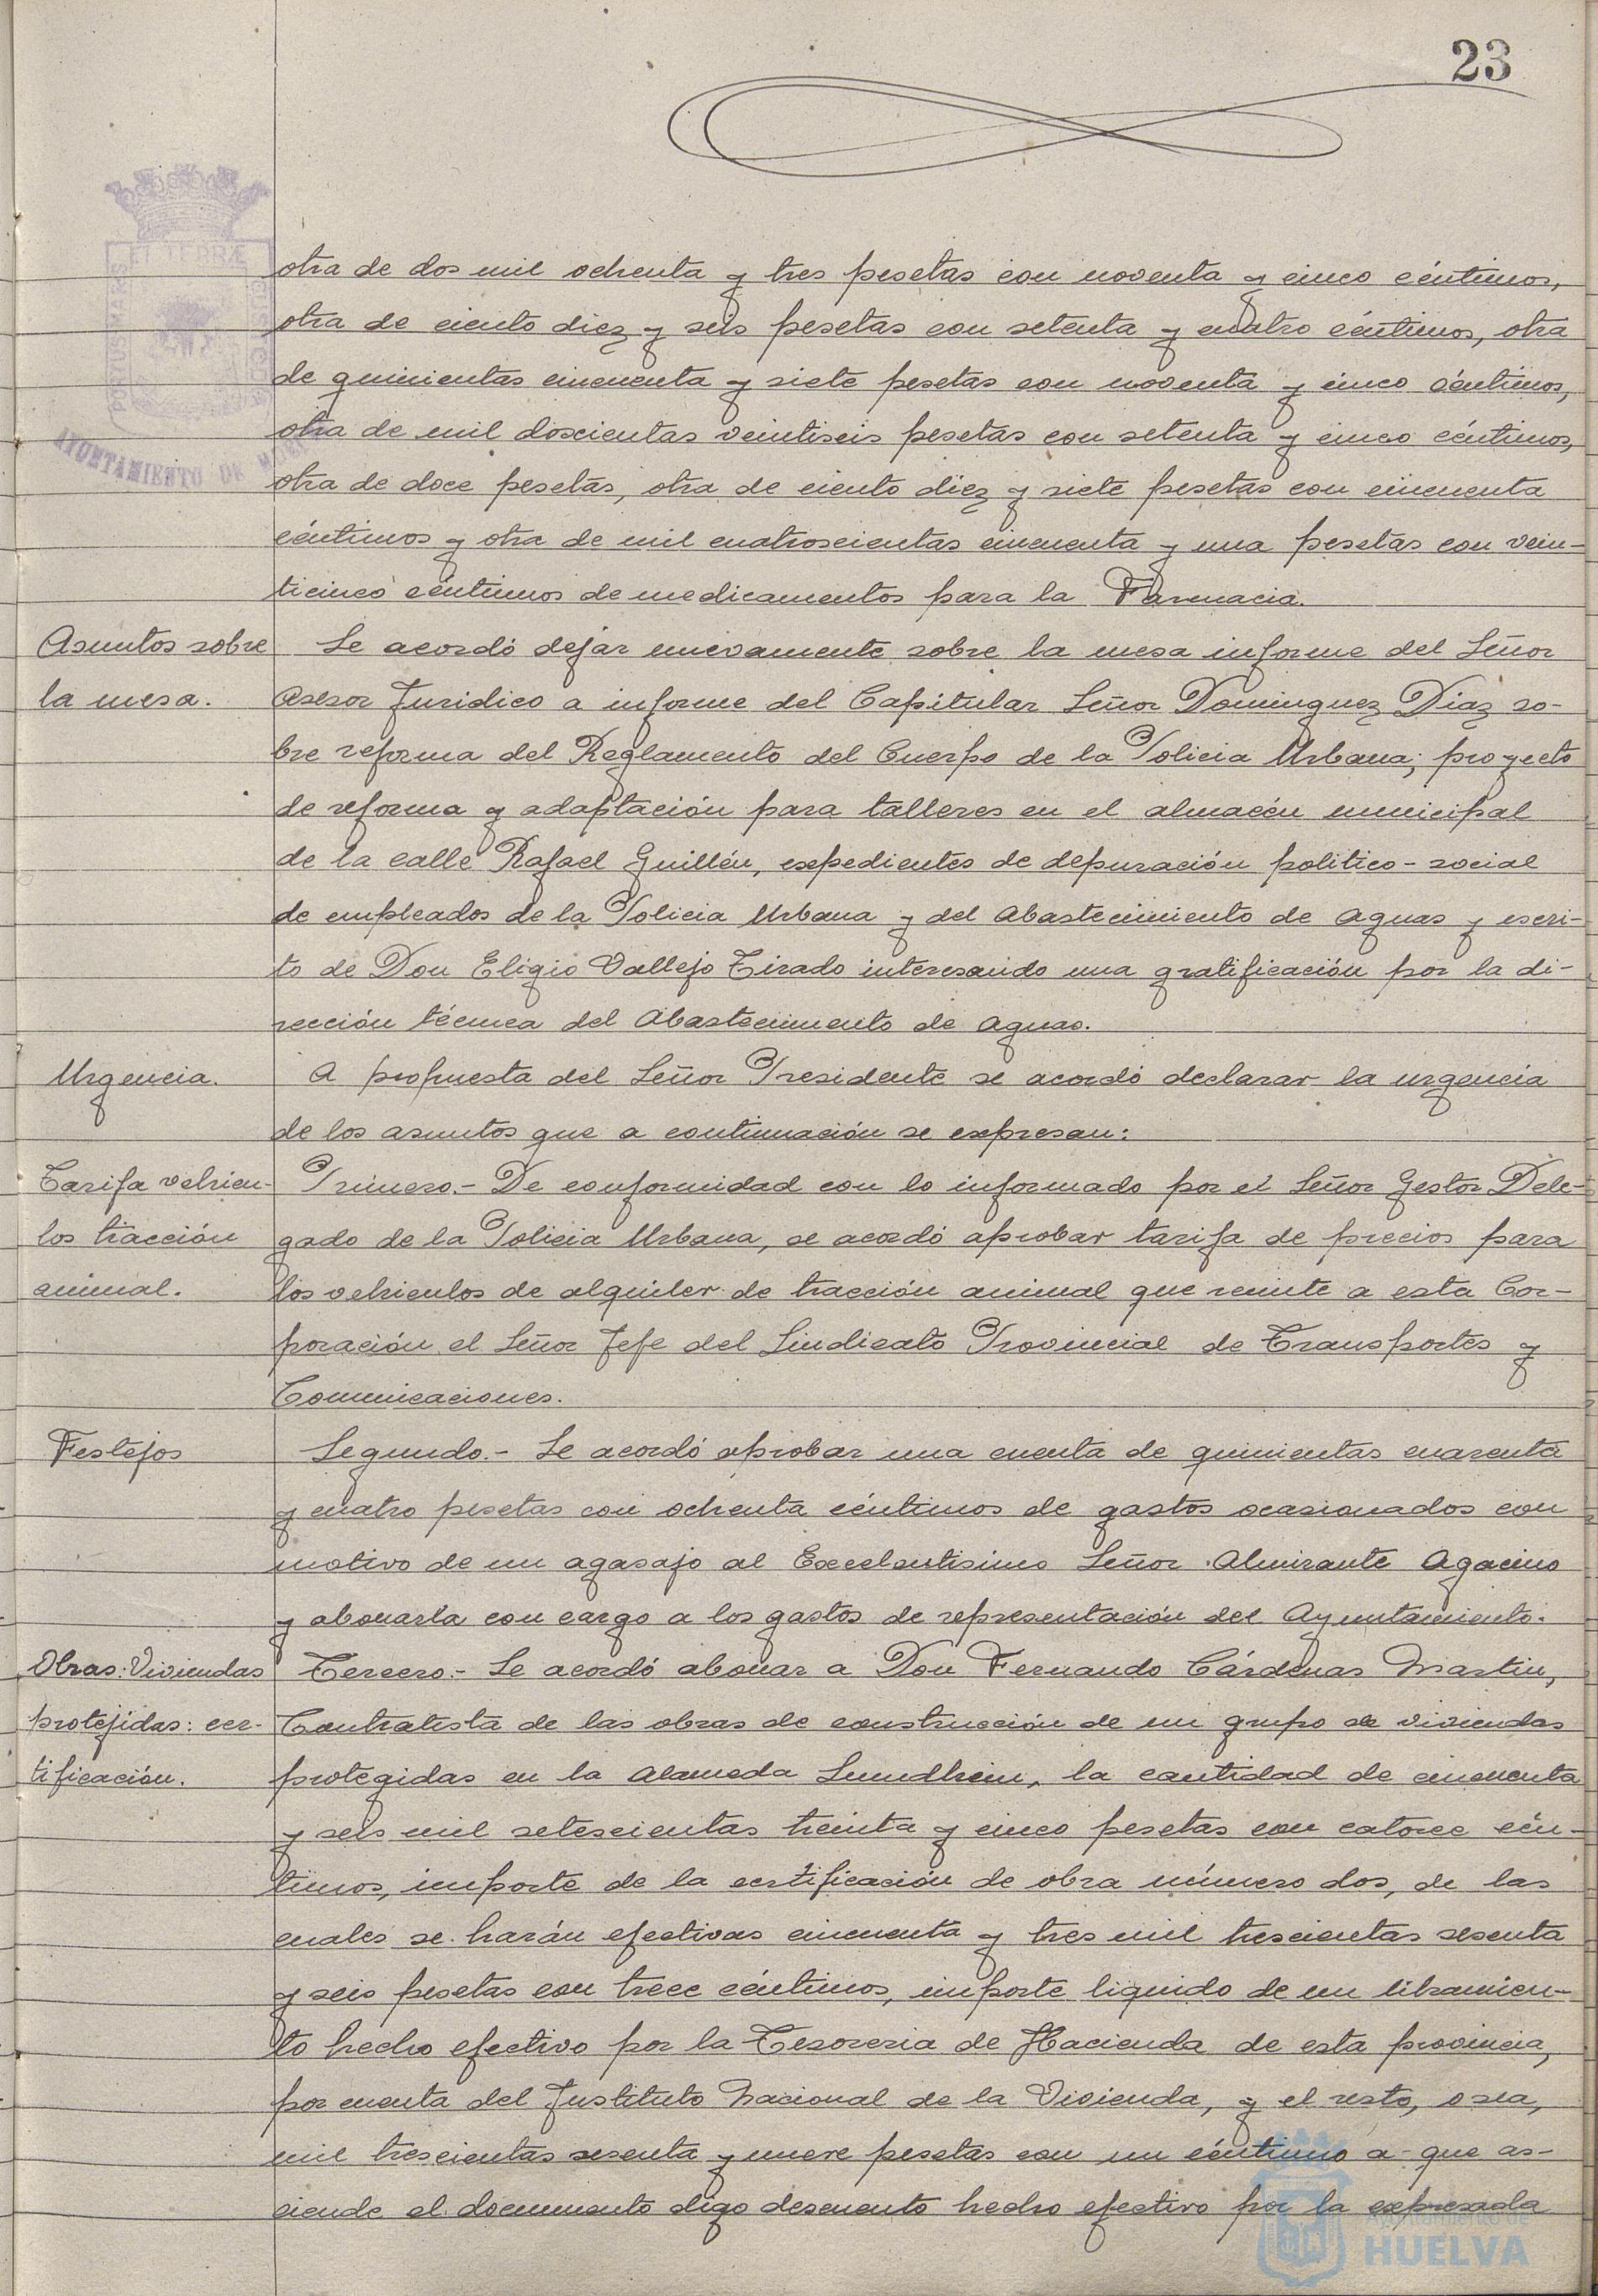 23
PORTUS MARIS ET TERRÆ CUSTODIA
AYUNTAMIENTO DE HUELVA
otra de dos mil ochenta y tres pesetas con noventa y cinco céntimos,
otra de ciento diez y seis pesetas con setenta y cuatro céntimos, otra
de quinientas cincuenta y siete pesetas con noventa y cinco céntimos,
otra de mil doscientas veintiseis pesetas con setenta y cinco céntimos,
otra de doce pesetas, otra de ciento diez y siete pesetas con cincuenta
céntimos y otra de mil cuatroscientas cincuenta y una pesetas con vein-
ticinco céntimos de medicamentos para la Farmacia.
Asuntos sobre
la mesa.
Se acordó dejar nuevamente sobre la mesa informe del Señor
Asesor Juridico a informe del Capitular Señor Dominguez Diaz so-
bre reforma del Reglamento del Cuerpo de la Policia Urbana; proyecto
de reforma y adaptación para talleres en el almacén municipal
de la calle Rafael Guillén, expedientes de depuración politico-social
de empleados de la Policia Urbana y del Abastecimiento de Aguas y escri-
to de Don Eligio Vallejo Tirado interesando una gratificación por la di-
rección técnica del Abastecimento de Aguas.
Urgencia.
A propuesta del Señor Presidente se acordó declarar la urgencia
de los asuntos que a continuación se expresan:
Tarifa vehicu-
los tracción
animal.
Primero.- De conformidad con lo informado por el Señor Gestor Dele-
gado de la Policia Urbana, se acordó aprobar tarifa de precios para
los vehiculos de alquiler de tracción animal que remite a esta Cor-
poración el Señor Jefe del Sindicato Provincial de Transportes y
Comunicaciones.
Festejos
Segundo.- Se acordó aprobar una cuenta de quinientas cuarenta
y cuatro pesetas con ochenta céntimos de gastos ocasionados con
motivo de un agasajo al Excelentisimo Señor Almirante Agacino
y abonarla con cargo a los gastos de representación del Ayuntamiento.
Obras: Viviendas
protejidas: cer-
tificación.
Tercero.- Se acordó abonar a Don Fernando Cárdenas Martin,
Contratista de las obras de construcción de un grupo de viviendas
protegidas en la Alameda Sumdhein, la cantidad de cincuenta
y seis mil setescientas treinta y cinco pesetas con catorce cén-
timos, importe de la certificación de obra número dos, de las
cuales se harán efectivas cincuenta y tres mil trescientas sesenta
y seis pesetas con trece céntimos, importe liquido de un libramien-
to hecho efectivo por la Tesoreria de Hacienda de esta provincia,
por cuenta del Instituto Nacional de la Vivienda, y el resto, o sea,
mil trescientas sesenta y nueve pesetas con un céntimo a que as-
ciende el documento digo descuento hecho efectivo por la expresada
Ayuntamiento de
HUELVA